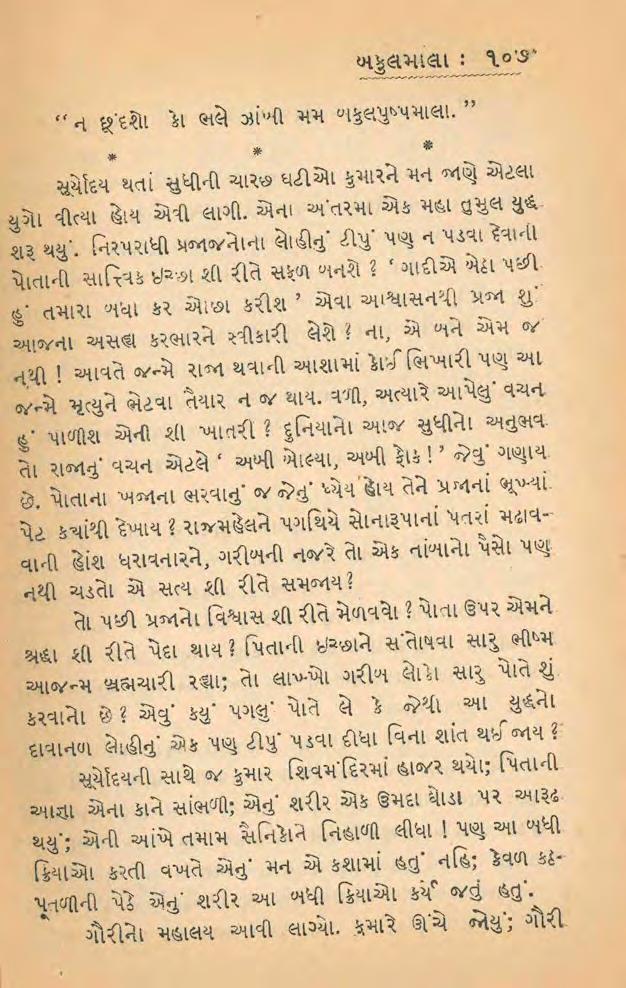 બકુલમાલા : ૧૦૭
“ન છૂંદશો કો ભલે ઝાંખી મમ બકુલપુષ્પમાલા.”
* * *
સૂર્યોદય થતાં સુધીની ચારછ ઘટીઓ કુમારને મન જાણે એટલા
યુગો વીત્યા હોય એવી લાગી. એના અંતરમા એક મહા તુમુલ યુદ્ધ
શરૂ થયું. નિરપરાધી પ્રજાજનોના લોહીનું ટીપું પણ ન પડવા દેવાની
પોતાની સાત્ત્વિક ઇચ્છા શી રીતે સફળ બનશે ? ‘ ગાદીએ બેઠા પછી
હું તમારા બધા કર ઓછા કરીશ ’ એવા આશ્વાસનથી પ્રજા શું
આજના અસહ્ય કરભારને સ્વીકારી લેશે ? ના, એ બને એમ જ
નથી ! આવતે જન્મે રાજા થવાની આશામાં કોઈ ભિખારી પણ આ
જન્મે મૃત્યુને ભેટવા તૈયાર ન જ થાય. વળી, અત્યારે આપેલું વચન
હું પાળીશ એની શી ખાતરી ? દુનિયાનો આજ સુધીનો અનુભવ
તો રાજાનું વચન એટલે ‘ અબી બોલ્યા, અબી ફોક ! ’ જેવું ગણાય
છે. પોતાના ખજાના ભરવાનું જ જેનું ધ્યેય હોય તેને પ્રજાનાં ભૂખ્યાં
પેટ ક્યાંથી દેખાય ? રાજમહેલને પગથિયે સોનારૂપાનાં પતરાં મઢાવ-
વાની હોંશ ધરાવનારને, ગરીબની નજરે તો એક તાંબાનો પૈસો પણ
નથી ચડતો એ સત્ય શી રીતે સમજાય ?
તો પછી પ્રજાનો વિશ્વાસ શી રીતે મેળવવો ? પોતા ઉપર એમને
શ્રદ્ધા શી રીતે પેદા થાય ? પિતાની ઇચ્છાને સંતોષવા સારુ ભીષ્મ
આજન્મ બ્રહ્મચારી રહ્યા; તો લાખ્ખો ગરીબ લોકો સારુ પોતે શું
કરવાનો છે ? એવું કયું પગલું પોતે લે કે જેથી આ યુદ્ધનો
દાવાનળ લોહીનું એક પણ ટીપું પડવા દીધા વિના શાંત થઈ જાય ?
સૂર્યોદયની સાથે જ કુમાર શિવમંદિરમાં હાજર થયો; પિતાની
આજ્ઞા એના કાને સાંભળી; એનું શરીર એક ઉમદા ઘોડા પર આરૂઢ
થયું; એની આંખે તમામ સૈનિકોને નિહાળી લીધા ! પણ આ બધી
ક્રિયાઓ કરતી વખતે એનું મન એ કશામાં હતું નહિ; કેવળ કઠ-
પૂતળીની પેઠે એનું શરીર આ બધી ક્રિયાઓ કર્યે જતું હતું.
ગૌરીનો મહાલય આવી લાગ્યો. કુમારે ઊંચે જોયું; ગૌરી